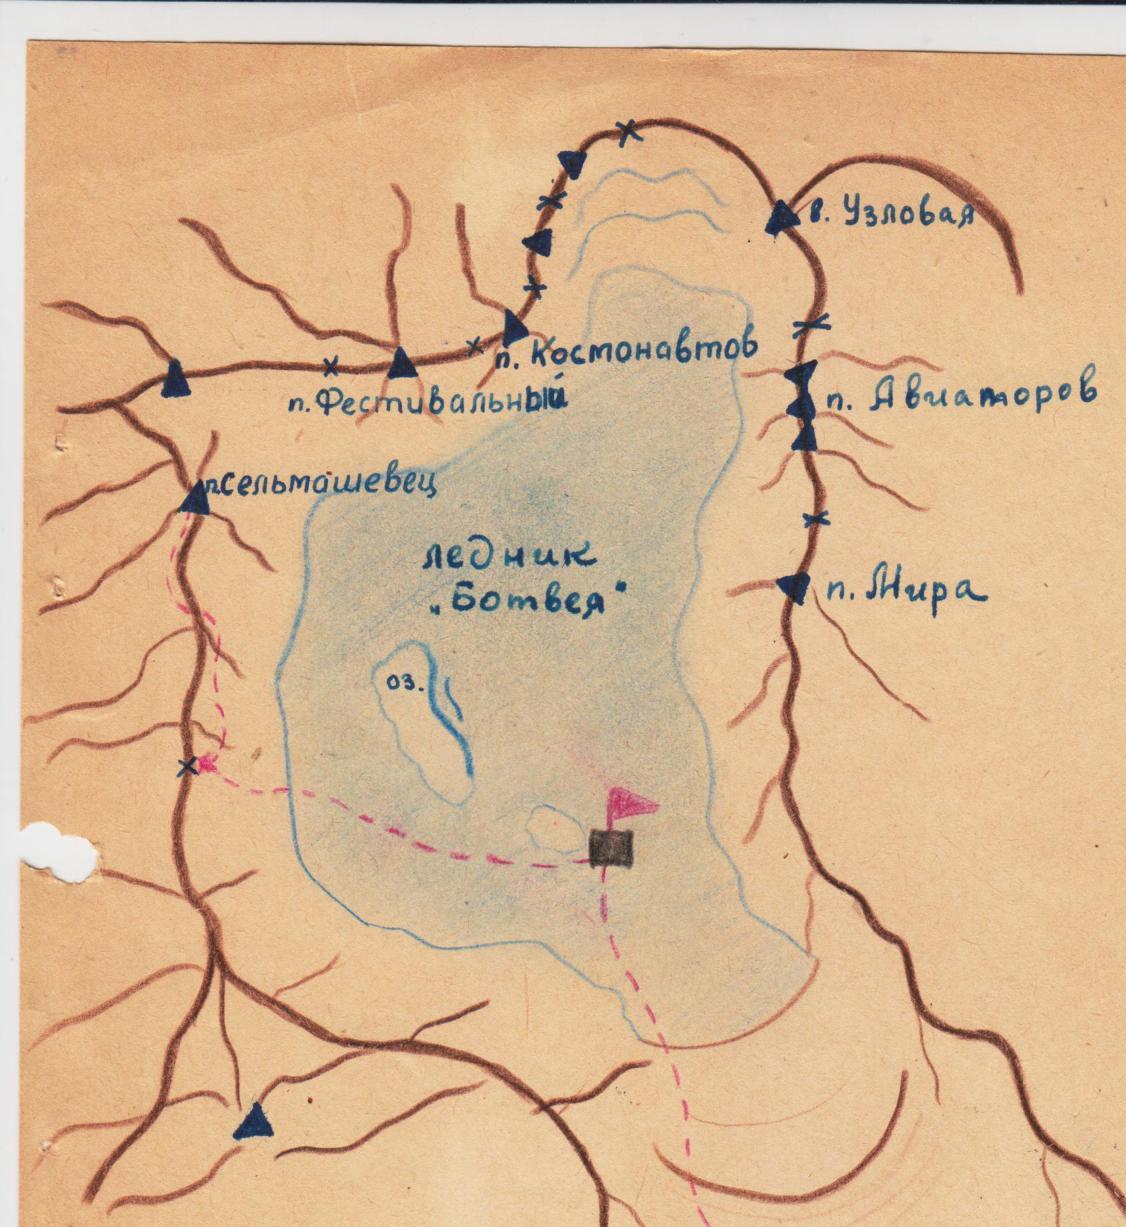 в. Узловая
п. Костонавтов
п. Авиаторов
п. Фестивальный
п. Сельмашевец
ледник
„Ботвея"
п. Мира
оз.